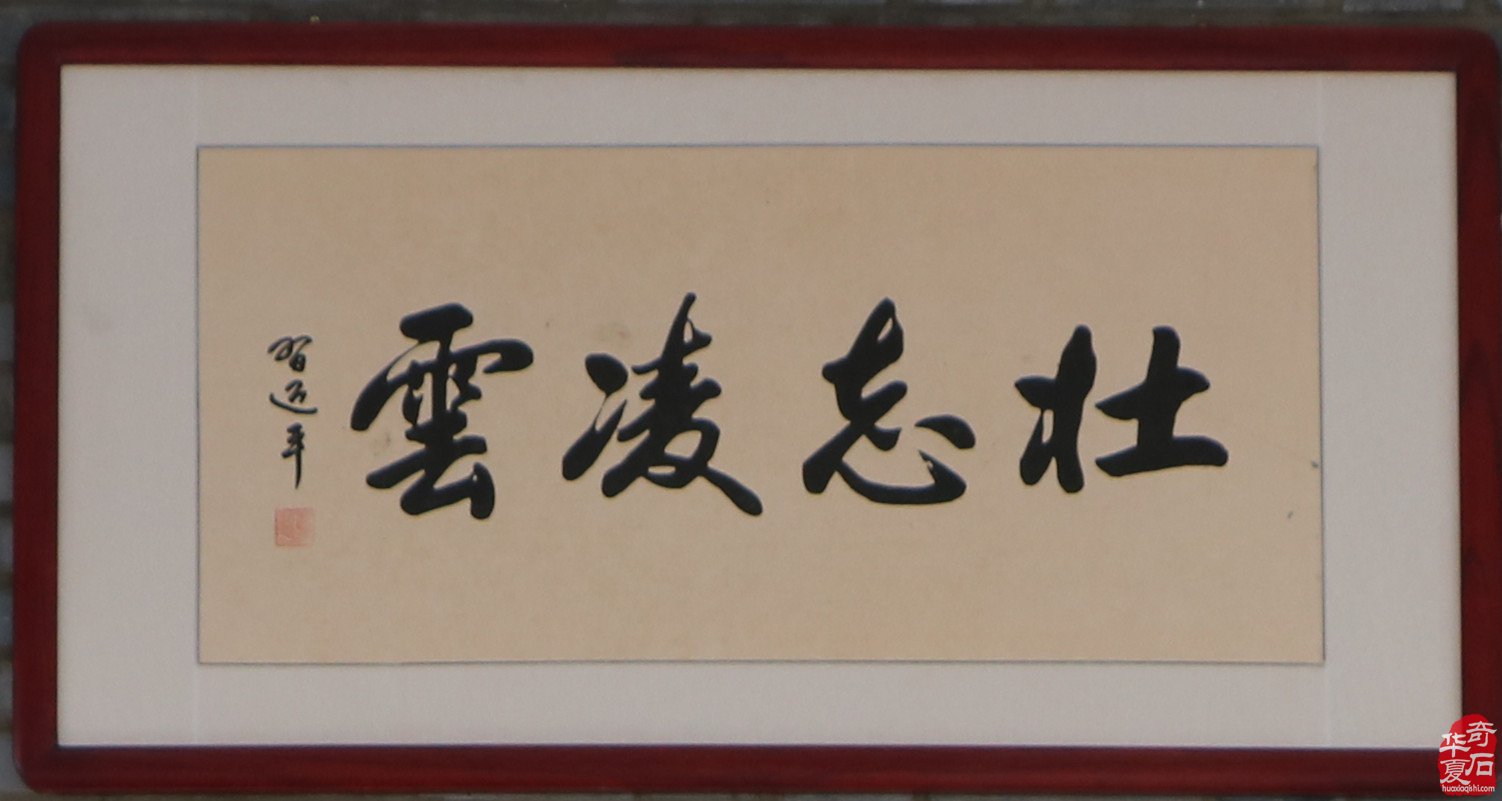 壮志凌雲
習近平
华夏奇石
huaxiaqishi.com